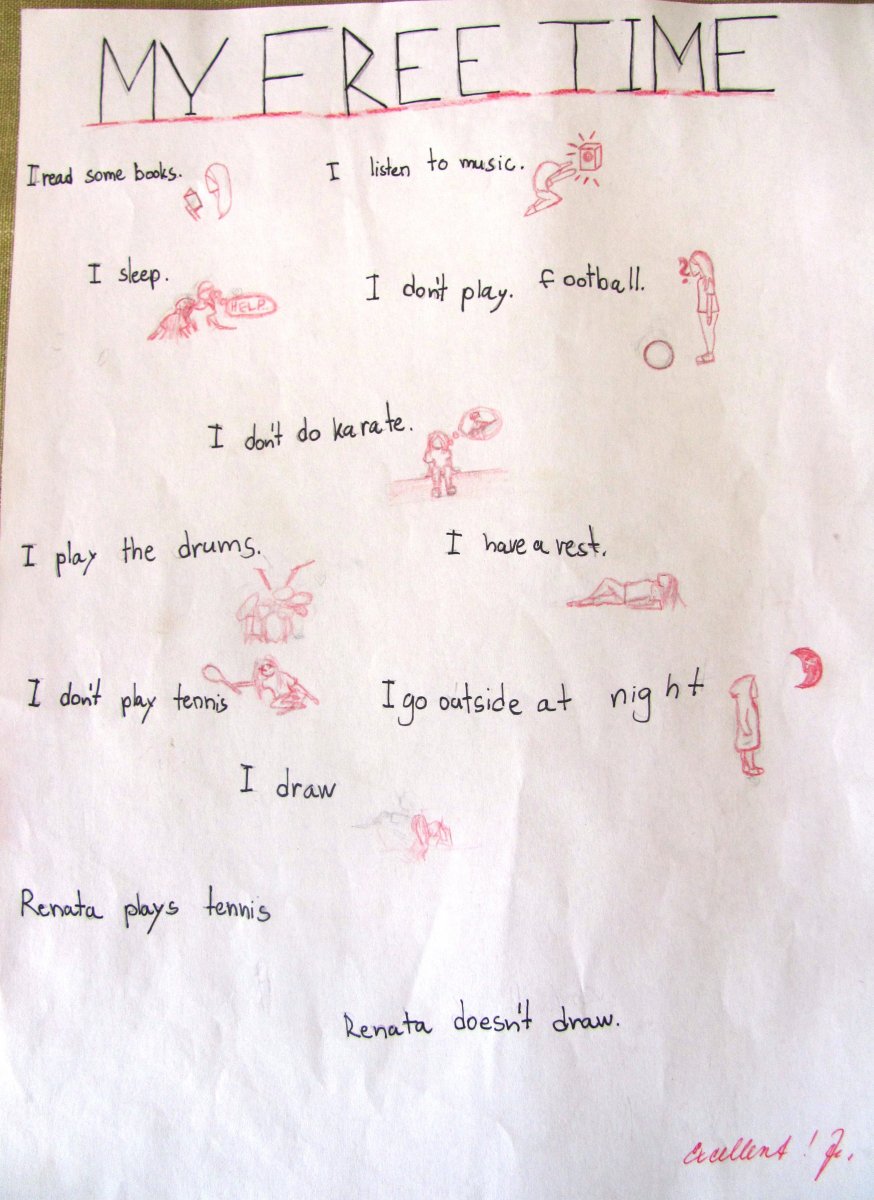 MY FREE TIME
I read some books.
I listen to music.
I sleep.
HELP
I don't play. football.
?
I don't do karate.
I play the drums.
I have a rest.
I don't play tennis
I go outside at night
I draw
Renata plays tennis
Renata doesn't draw.
Excellent!